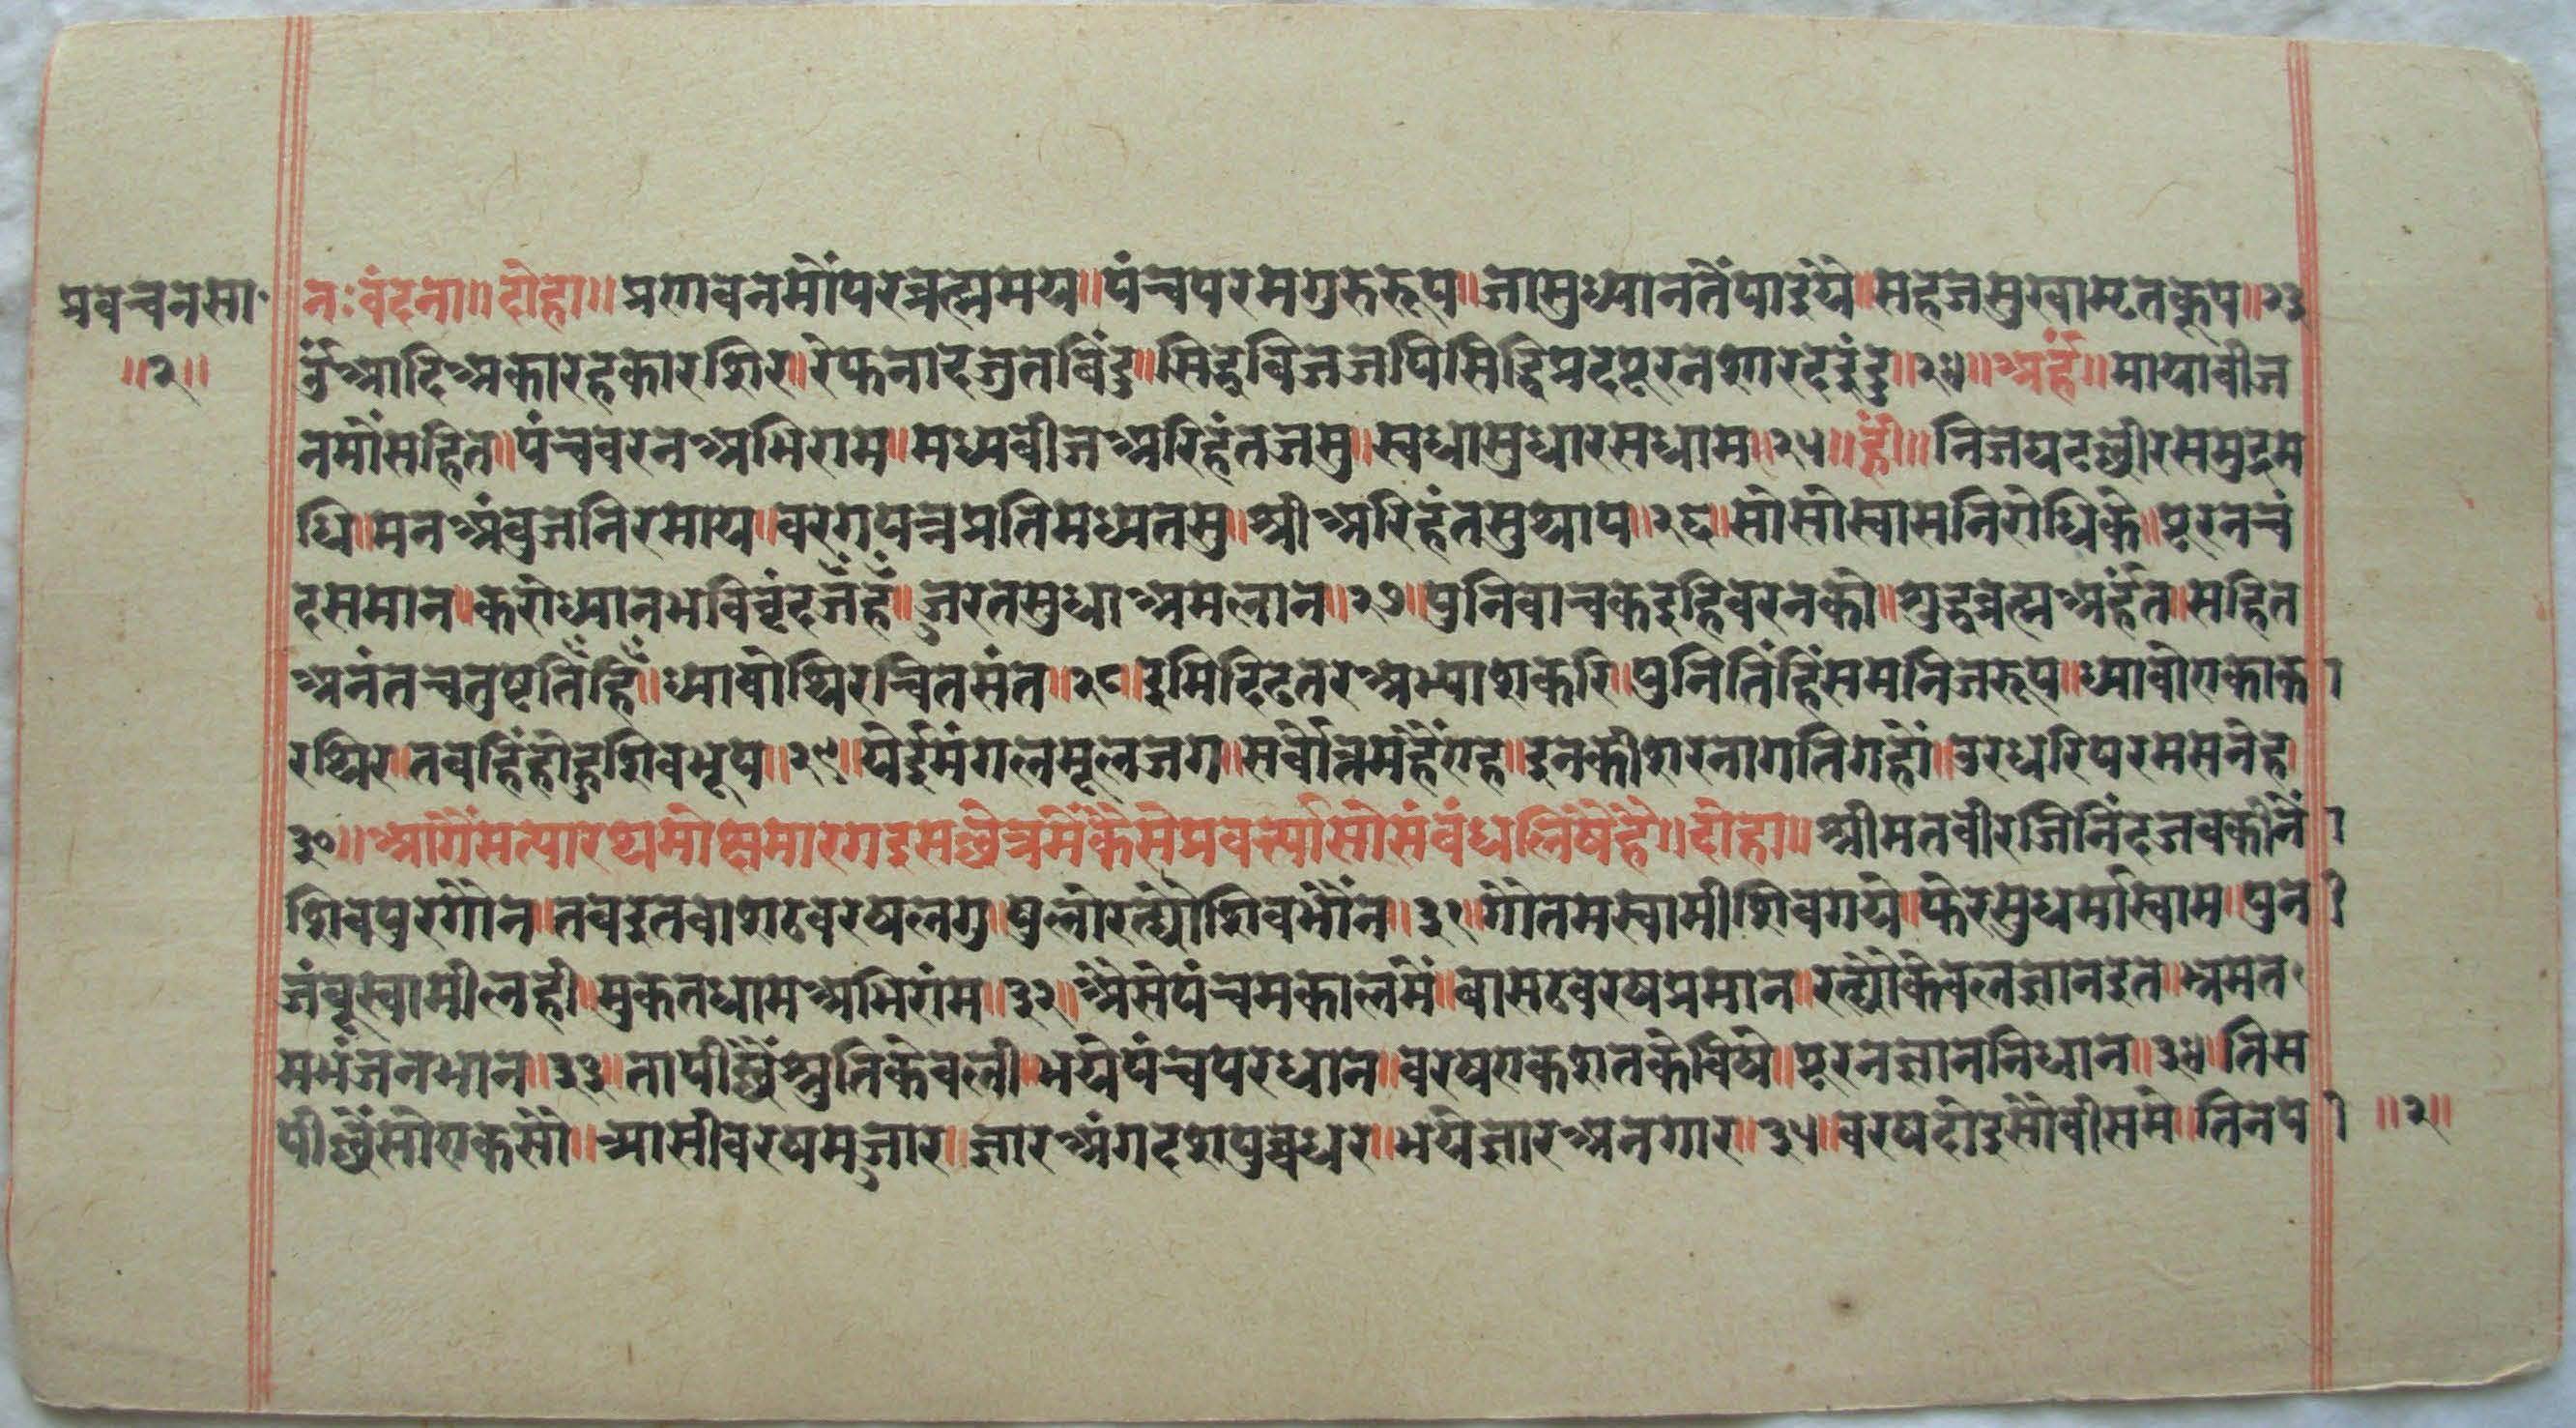 प्रवचनसा॰
॥२॥
नः वंदना॥ दोहा॥ प्रणवनमोंपरब्रह्ममय॥ पंचपरमगुरुरूप॥ जासुध्यानतैंपाइये॥ सहजसुखामृतकूप॥२३
र्ड्आदिअकारहकारशिर॥ रेफनादजुतबिंदु॥ सिद्धबिजजपिसिद्धिप्रदपूरनशारदइंदु॥२४॥ अर्हं॥ मायाबीज
नमोंसहित॥ पंचवरनअभिराम॥ मध्यबीजअरिहंतजसु॥ स्वधासुधारसधाम॥२५॥ ह्रीं॥ निजघटछीरसमुद्रम
धि॥ मनअंबुजनिरमाय॥ वरगपत्रप्रतिमध्यतसु॥ श्रीअरिहंतसुथाप॥२६॥ सोसोस्वासनिरोधिके॥ पूरनचं
दसमान॥ करोध्यानभविवृंदजँहँ॥ झरतसुधाअमलान॥२७॥ पुनिवाचकइहिवरनको॥ शुद्धब्रह्मअर्हंत॥ सहित
अनंतचतुष्टतिँहिँ॥ ध्यावोथिरचितसंत॥२८॥ इमिदिढतरअभ्याशकरि॥ पुनितिंहिंसमनिजरूप॥ ध्यावोएकाका
रथिर॥ तबहिंहोहुशिवभूप॥२९॥ येईमंगलमूलजग॥ सर्वोत्तमहैंएह॥ इनकीशरनागतिगहों॥ उरधरिपरमसनेह
३०॥ आगैंसत्यारथमोक्षमारगइसछेत्रमेंकैसेप्रवर्त्त्यासोसंबंधलिषेहै॥ दोहा॥ श्रीमतवीरजिनिंदजबकीनों
शिवपुरगौन॥ तबइतबाशठबरषलगु॥ षुलोरह्योशिवभौंन॥३१॥ गौतमस्वामीशिवगये॥ फेरसुधर्मास्वाम॥ पुनि
जंबूस्वामीलही॥ मुकतधामअभिरांम॥३२॥ अैसेपंचमकालमें॥ बासठबरषप्रमान॥ रह्योकेवलज्ञानइत॥ भ्रमत
मभंजनभान॥३३॥ तापीछैंश्रुतिकेवली॥ भयेपंचपरधान॥ बरषएकशतकेविषे॥ पूरनज्ञाननिधान॥३४॥ तिस
पीछैंसोएकसौ॥ यासीबरषमझार॥ ज्ञारअंगदशपुब्बधर॥ भयेज्ञारअनगार॥३५॥ बरषदोइसौवीसमे॥ तिनप
॥२॥